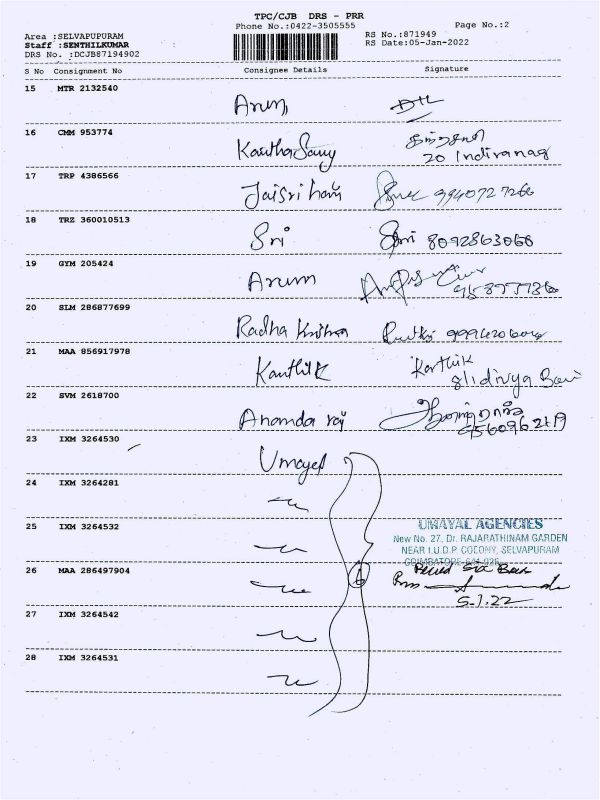 TPC/CJB DRS - PRR
Phone No.:0422-3505555
Page No.:2
Area :SELVAPUPURAM
RS No.:871949
Staff :SENTHILKUMAR
RS Date:05-Jan-2022
DRS No. :DCJB87194902
S No Consignment No Consignee Details Signature
15 MTR 2132540
Arun
16 CMM 953774
Kantha Samy
20 Indiranag
17 TRP 4386566
Jaisri ham 9940727266
18 TRZ 360010513
Sri Sri 8092863066
19 GYM 205424
Arun
20 SLM 286877699
Radha Krishna
21 MAA 856917978
Karthik Karthik
22 SVM 2618700
Ananda raj
9560962119
23 IXM 3264530
Umayal
24 IXM 3264281
25 IXM 3264532
UMAYAL AGENCIES
New No. 27, Dr. RAJARATHINAM GARDEN
NEAR I.U.D.P. COLONY, SELVAPURAM
COIMBATORE-641 026
26 MAA 286497904
6
5.1.22
27 IXM 3264542
28 IXM 3264531